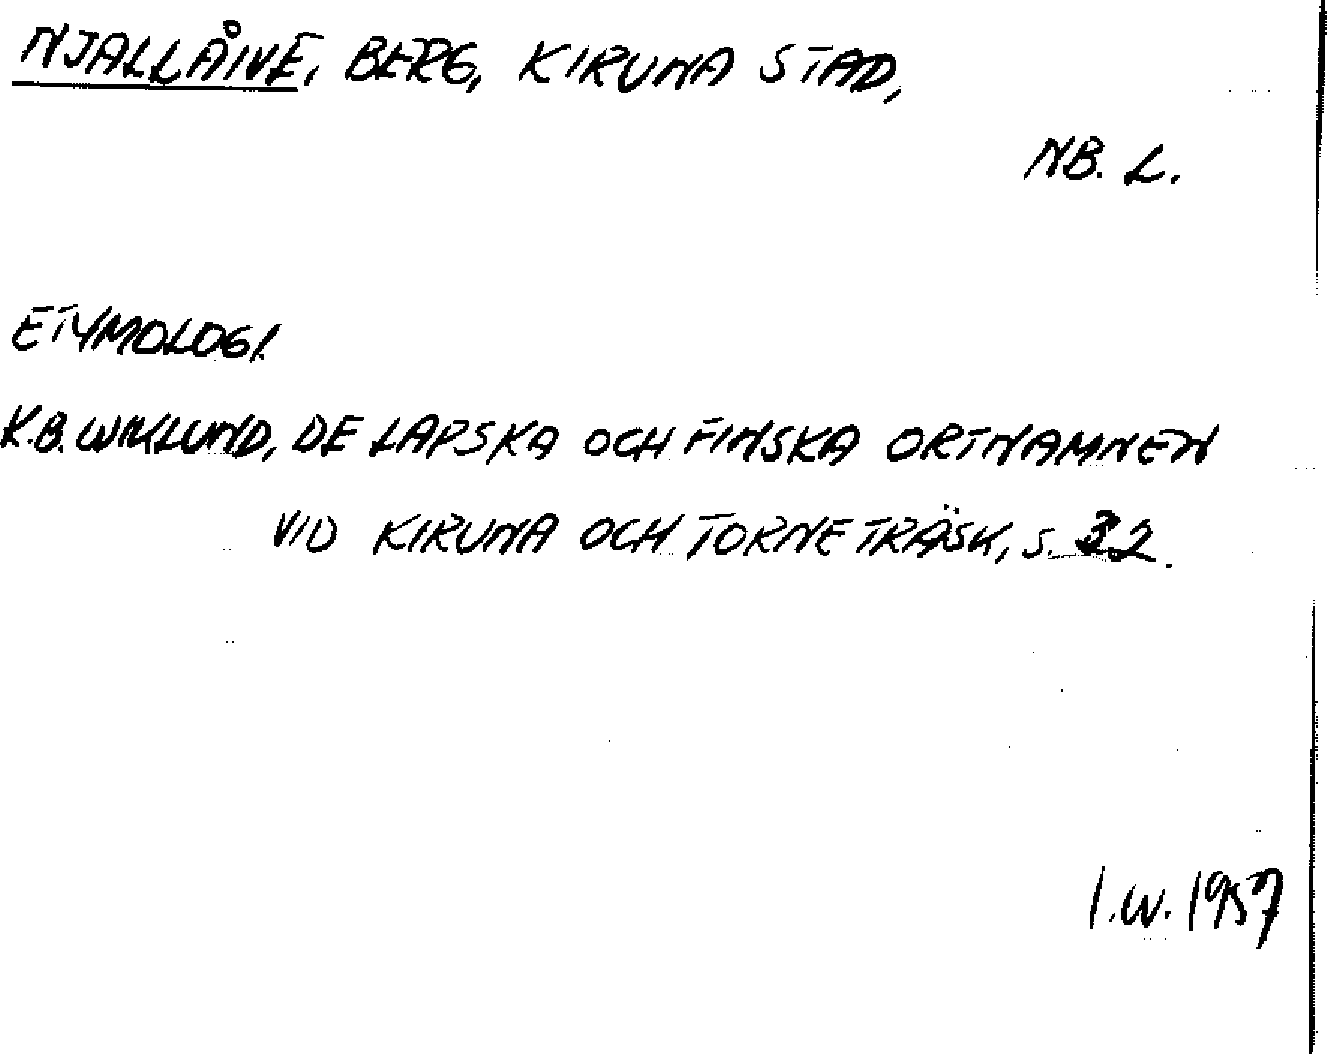 NJALLÅIVE, BERG, KIRUNA STAD,
NB. L.
ETYMOLOGI.
K.B. WIKLUND, DE LAPSKA OCH FINSKA ORTNAMNEN
VID KIRUNA OCH TORNE TRÄSK, S. 32.
I.W. 1957